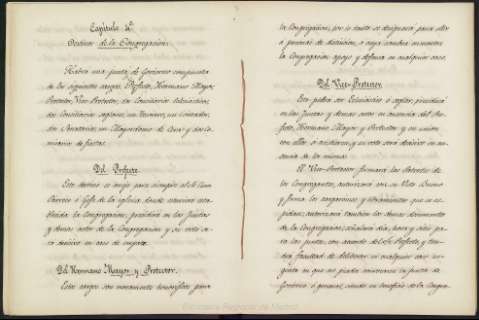 Capítulo 4º
Destinos de la Congregación.
Habrá una junta de Gobierno compuesta
de los siguientes cargos: Prefecto, Hermano Mayor,
Protector, Vice-Protector, Conciliarios Eclesiásticos,
dos Conciliarios seglares, un Tesorero, un Contador,
dos Secretarios, un Mayordomo de
de fiestas.
Del Prefecto
Este destino es anejo para siempre al Sr. Cura
Párroco ó Jefe de la iglesia, donde estuviere esta-
blecida la Congregación, presidirá en las Juntas
y demás actos de la Congregación y su voto se-
rá decisivo en caso de empate.
Del Hermano Mayor y Protector.
Estos cargos son meramente honoríficos para
la Congregación, por lo tanto se designará para ello
á personas de distinción, á cuya sombra encuentre
la Congregación apoyo y defensa en cualquier caso.
Del Vice-Protector
Este podrá ser Eclesiástico ó seglar, presidirá
en las Juntas y demás actos en ausencia del Pre-
fecto, Hermano Mayor y Protector y en unión
con ellos si asistieren, y su voto será decisivo en au-
sencia de los mismos.
El Vice-Protector firmará las Patentes de
los Congregantes, autorizará con su Visto Bueno
y firma los cargaremes y libramientos que se es-
pidan; autorizará también los demás documentos
de la Congregación; señalará día, hora y sitio pa-
ra las juntas, con acuerdo del Sr. Prefecto, y ten-
drá facultad de deliberar en cualquier caso ur-
gente en que no pueda reunirse la junta de
Gobierno ó general, siendo en beneficio de la Congre-
Biblioteca Regional de Madrid